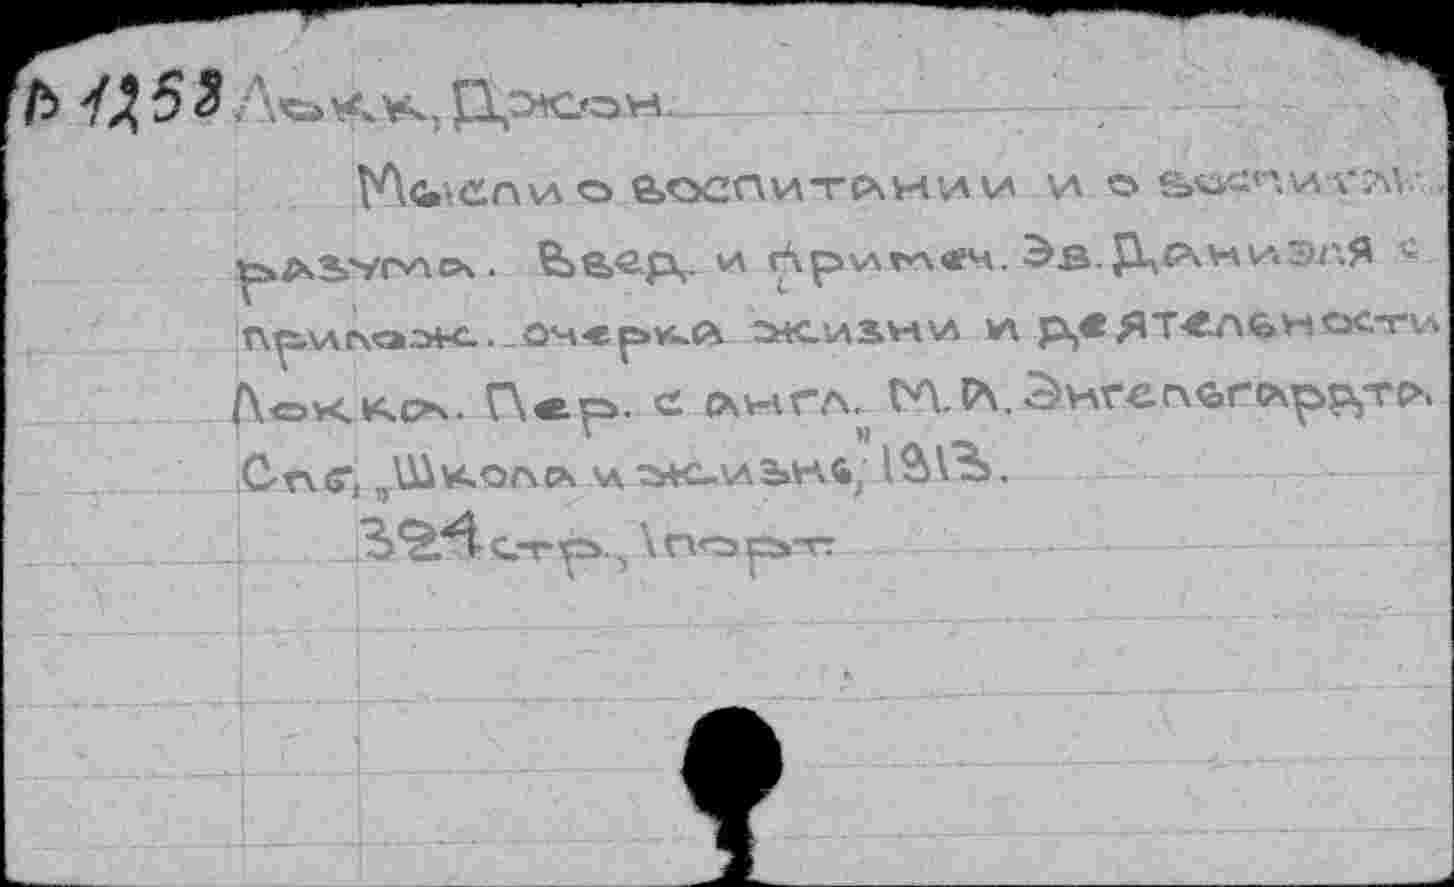 Локк, Джон.
Мысли о воспитании и о воспитан.
разума. Введ. и примеч. Эв. Даниэля с
прилож. очерка жизни и деятельности
Локка. Пер. с англ. М.А. Энгельгардта.
Спб, „Школа и жизнь," 1913.
324 стр., 1 порт.